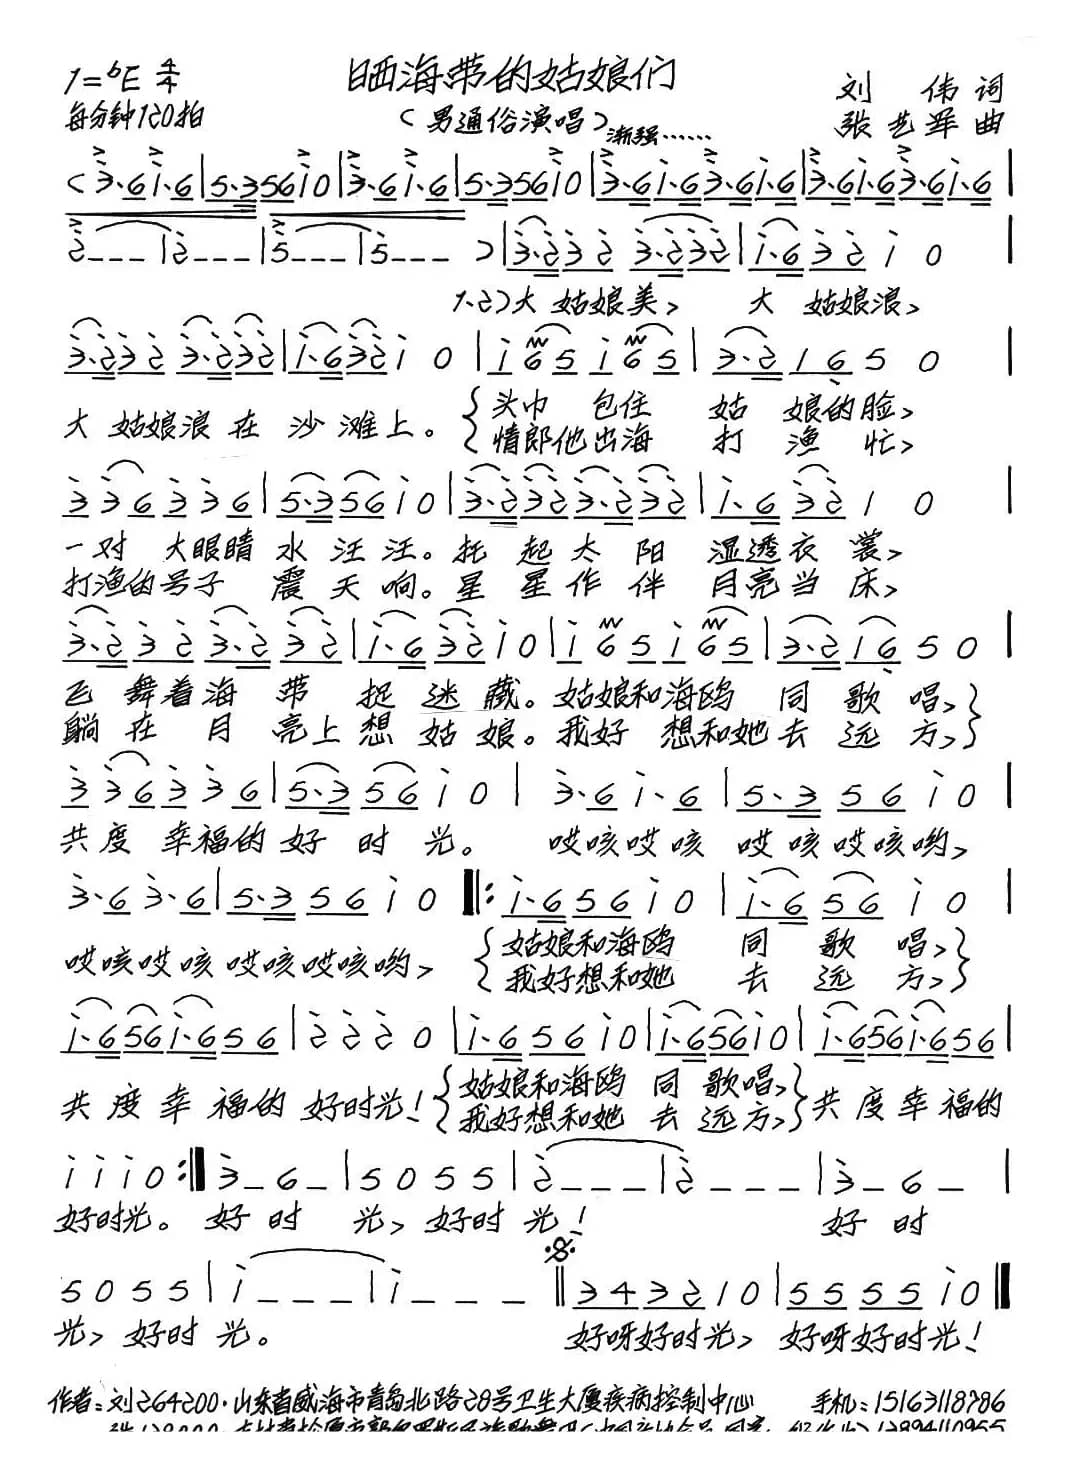 晒海带的姑娘们
1=♭E 4/4
每分钟120拍
(男通俗演唱)
刘 伟 词
张艺军 曲
渐强……
(3̇·6 1̇·6|5·3 5 6 1̇ 0|3̇·6 1̇·6|5·3 5 6 1̇ 0|3̇·6 1̇·6 3̇·6 1̇·6|3̇·6 1̇·6 3̇·6 1̇·6|
2̇ - - -|2̇ - - -|5̇ - - -|5̇ - - -)|3̇·2̇ 3̇ 2̇ 3̇·2̇ 3̇ 2̇|1̇·6 3̇ 2̇ 1̇ 0|
1.2)大 姑娘美, 大 姑娘浪,
3̇·2̇ 3̇ 2̇ 3̇·2̇ 3̇ 2̇|1̇·6 3̇ 2̇ 1̇ 0|1̇ 6 5 1̇ 6 5|3·2 1 6̣ 5 0|
大 姑娘浪在 沙 滩上。{头巾 包住 姑 娘的脸,
{情郎他出海 打 渔 忙,
3̇ 3̇ 6 3̇ 3̇ 6|5·3 5 6 1̇ 0|3̇·2̇ 3̇ 2̇ 3̇·2̇ 3̇ 2̇|1̇·6 3̇ 2̇ 1 0|
一对 大眼睛 水 汪 汪。托 起 太 阳 湿透衣 裳,
打渔的号子 震 天 响。星 星 作 伴 月亮当 床,
3̇·2̇ 3̇ 2̇ 3̇·2̇ 3̇ 2̇|1̇·6 3̇ 2̇ 1̇ 0|1̇ 6 5 1̇ 6 5|3·2 1 6̣ 5 0|
飞 舞着海 带 捉 迷 藏。姑娘和海鸥 同 歌 唱,}
躺 在 月 亮上想 姑 娘。我好 想和她去 远 方,}
3̇ 3̇ 6 3̇ 3̇ 6|5·3 5 6 1̇ 0|3̇·6 1̇·6|5·3 5 6 1̇ 0|
共度 幸福的好 时 光。 哎咳哎咳 哎咳哎咳哟,
3̇·6 3̇·6|5·3 5 6 1̇ 0‖:1̇·6 5 6 1̇ 0|1̇·6 5 6 1̇ 0|
哎咳哎咳 哎咳哎咳哟, {姑娘和海鸥 同 歌 唱,}
{我好想和她 去 远 方,}
1̇·6 5 6 1̇·6 5 6|2̇ 2̇ 2̇ 0|1̇·6 5 6 1̇ 0|1̇·6 5 6 1̇ 0|1̇·6 5 6 1̇·6 5 6|
共 度 幸 福的 好时光!{姑娘和海鸥 同 歌唱,}共 度 幸 福的
{我好想和她 去 远方,}
1̇ 1̇ 1̇ 0:‖3̇ - 6 -|5 0 5 5|2̇ - - -|2̇ - - -|3̇ - 6 -|
好时光。 好 时 光, 好时 光! 好 时
5 0 5 5|1̇ - - -|1̇ - - -‖3 4 3 2 1 0|5 5 5 5 1̇ 0‖
光, 好时 光。 好呀好时光, 好呀好时光!
作者:刘264200·山东省威海市青岛北路28号卫生大厦疾病控制中心 手机:15163118786